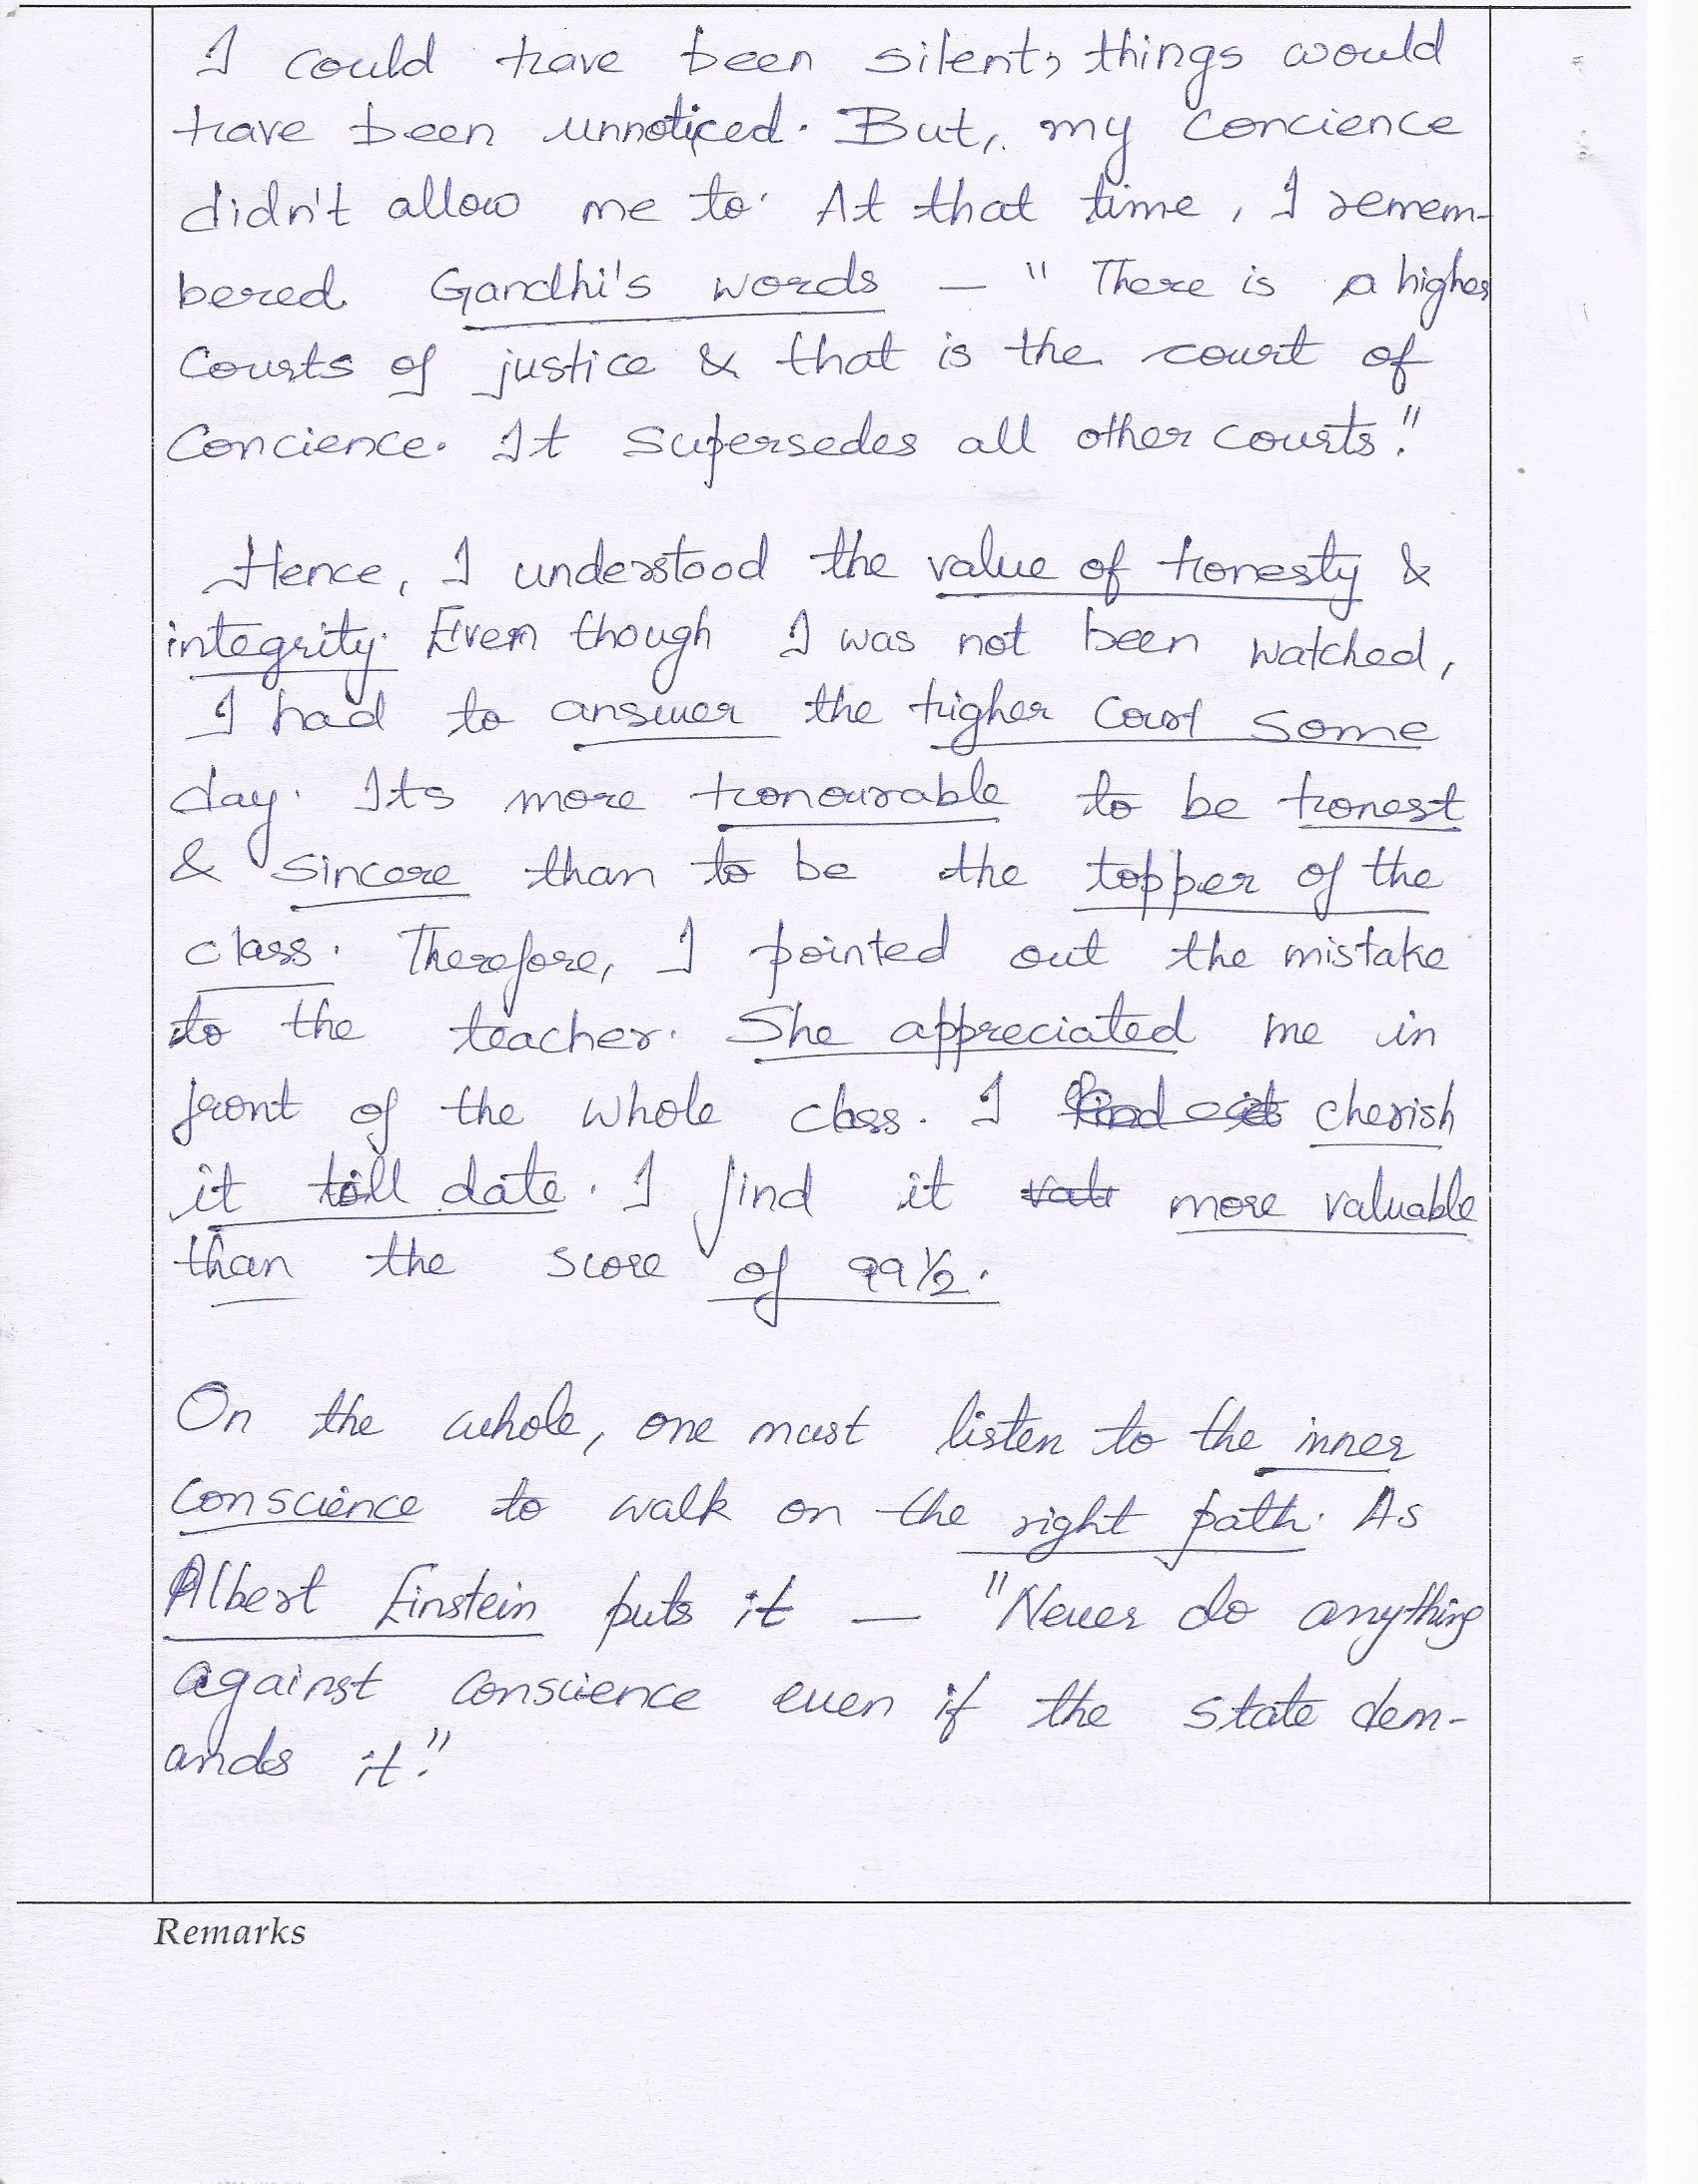 I could have been silent, things would
have been unnoticed. But, my concience
didn't allow me to. At that time, I remem-
bered Gandhi's words — "There is a higher
Courts of justice & that is the court of
Concience. It supersedes all other courts."
Hence, I understood the value of honesty &
integrity. Even though I was not been watched,
I had to answer the higher court some
day. Its more honourable to be honest
& sincere than to be the topper of the
class. Therefore, I pointed out the mistake
to the teacher. She appreciated me in
front of the whole class. I cherish
it till date. I find it more valuable
than the score of 99 1/2.
On the whole, one must listen to the inner
conscience to walk on the right path. As
Albert Einstein puts it — "Never do anything
against conscience even if the state dem-
ands it."
Remarks